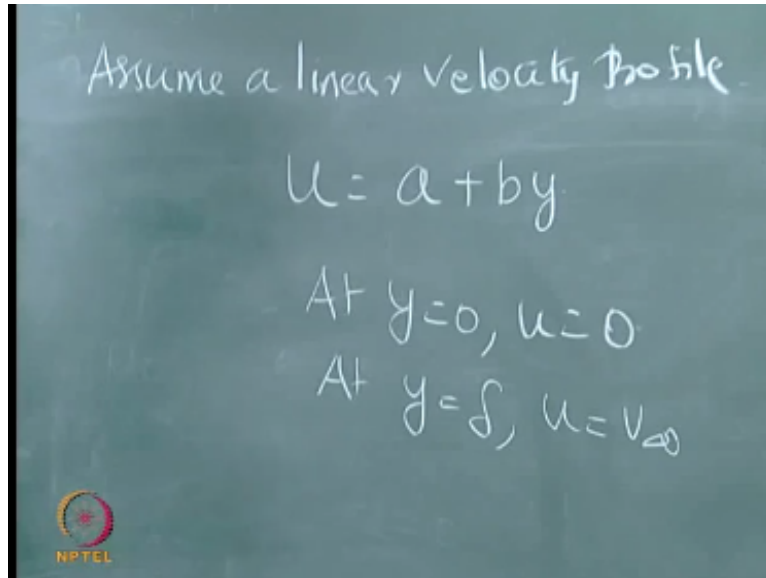 Assume a linear velocity profile
u = a + by
At y=0, u=0
At y=δ, u=V∞
NPTEL